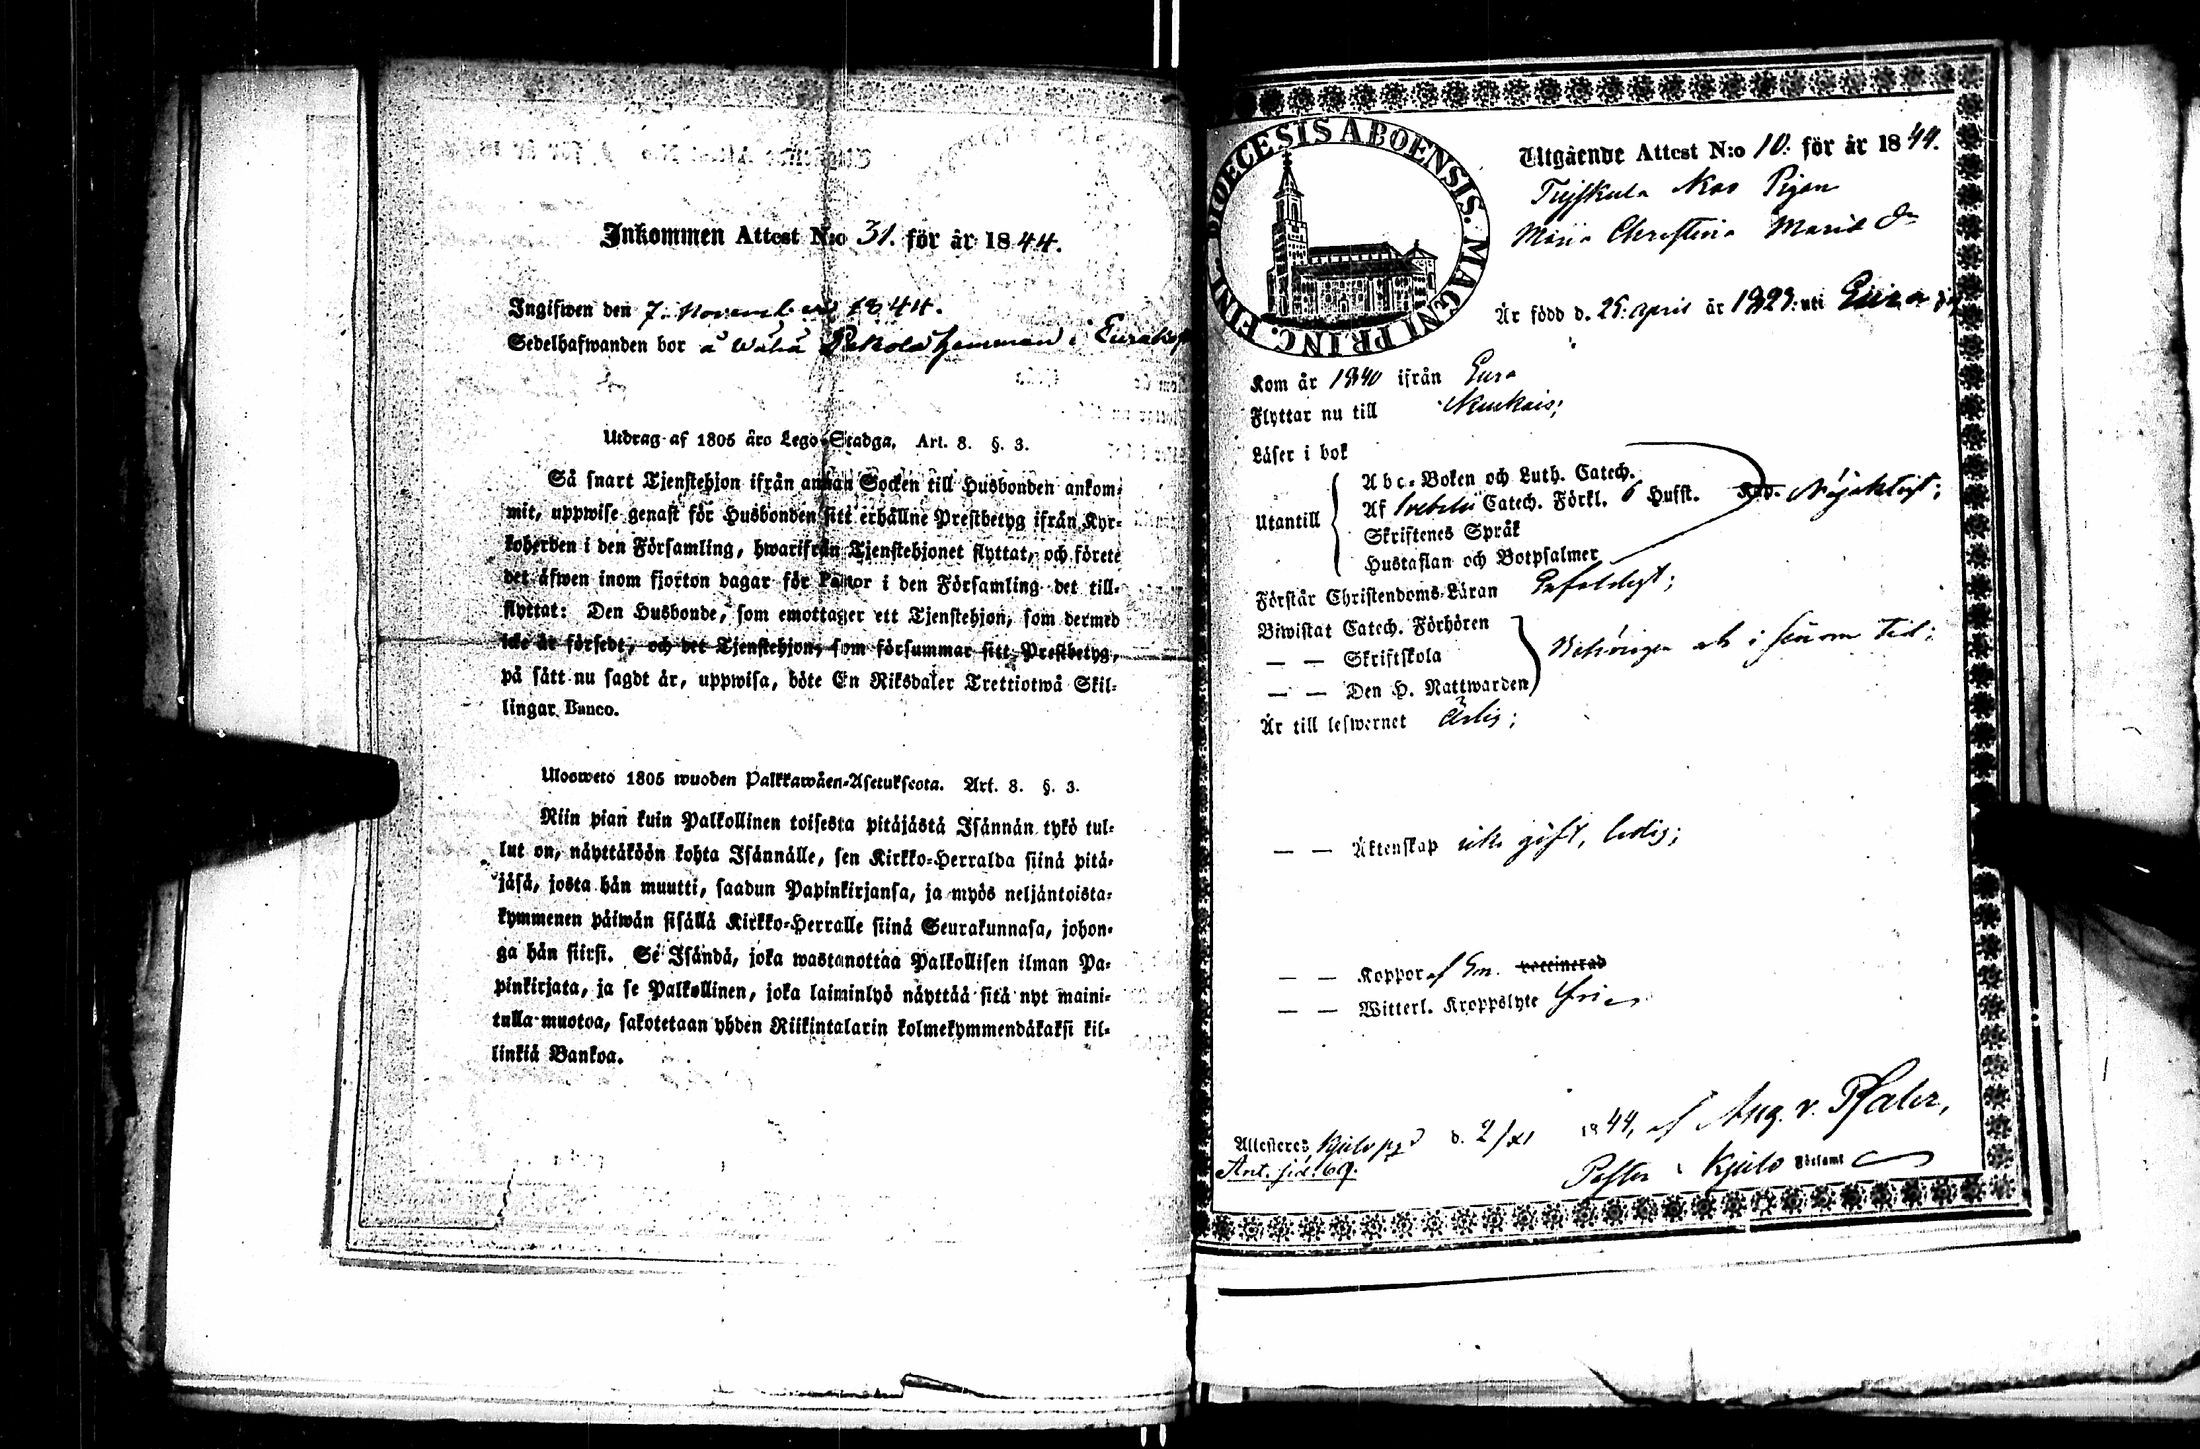 Inkommen Attest N:o 31. för år 1844.
Ingifwen den 7. November 1844.
Sedelhafwanden bor å Wähä Pekola hemman i
Utdrag af 1805 års Lego-Stadga. Art. 8. §. 3.
Så snart Tjenstehjon ifrån annan Socken till Husbonden ankom-
mit, uppwise genast för Husbonden sitt erhållne Prestbetyg ifrån Kyr-
koherden i den Församling, hwarifrån Tjenstehjonet flyttat, och förete
det äfwen inom fjorton dagar för Pastor i den Församling det till-
flyttat: Den Husbonde, som emottager ett Tjenstehjon, som dermed
icke är försedt, och det Tjenstehjon, som försummar sitt Prestbetyg,
på sätt nu sagdt är, uppwisa, böte En Riksdaler Trettiotwå Skil-
lingar Banco.
Uloswето 1805 wuoden Palkkawäen-Asetuksesta. Art. 8. §. 3.
Niin pian kuin Palkollinen toisesta pitäjästä Isännän tykö tul-
lut on, näyttäköön kohta Isännälle, sen Kirkko-Herralda siinä pitä-
jäsä, josta hän muutti, saadun Papinkirjansa, ja myös neljäntoista-
kymmenen päiwän sisällä Kirkko-Herralle siinä Seurakunnasa, johon-
ga hän siirsi. Se Isändä, joka wastanottaa Palkollisen ilman Pa-
pinkirjata, ja se Palkollinen, joka laiminlyö näyttää sitä nyt maini-
tulla muotoa, sakotetaan yhden Riikintalarin kolmekymmendäkaksi kil-
linkiä Bankoa.
DIOECESIS ABOENSIS. MAGNI PRINC. FINL.
Utgående Attest N:o 10. för år 1844.
Pigan
Maria Christina
Är född d. 25. april år 1823. uti Eura
Kom år 1840 ifrån Eura
Flyttar nu till
Läser i bok
Utantill
Abc-Boken och Luth. Catech.
Af Svebelii Catech. Förkl. 6 Hufst. Nöjaktigt;
Skriftenes Språk
Hustaflan och Botpsalmer
Förstår Christendoms-Läran Enfaldigt;
Biwistat Catech. Förhören
— — Skriftskola
— — Den H. Nattwarden
Behörigen och i sinom tid;
Är till lefwernet Ärlig;
— — Äktenskap icke gift, ledig;
— — Koppor af Gn. vaccinerad
— — Witterl. Kroppslyte fri
Attesteras Kjulo pgd d. 2/XI 1844, af Aug. v. Pfaler,
Ant. sid. 69.
Pastor i Kjulo Församl